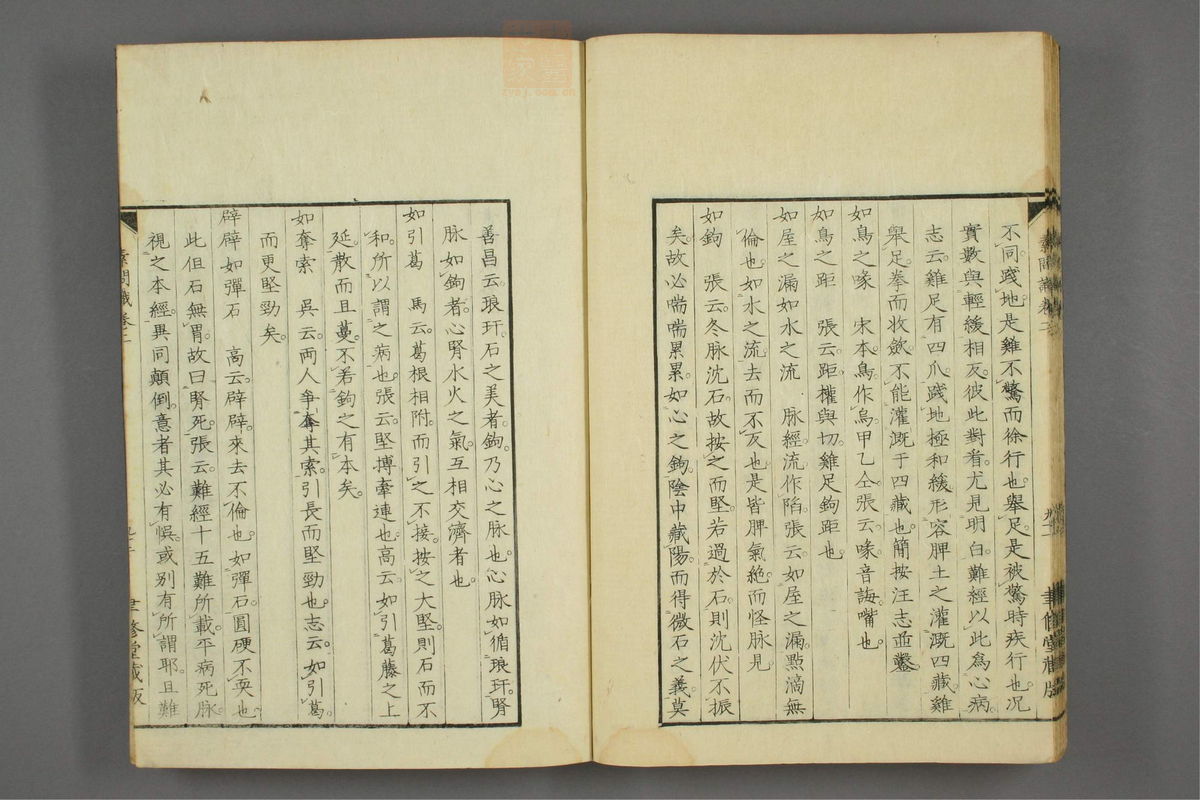 不同踐地是雞不驚而徐行也舉足是被驚時疾行也况
實數與輕緩相反彼此對看尤見明白難經以此為心病
志云雞足有四爪踐地極和緩形容脾土之灌溉四藏雞
舉足拳而收斂不能灌溉于四藏也簡按汪志並鑿
如鳥之喙　宋本鳥作烏甲乙仝張云喙音誨嘴也
如鳥之距　張云距權與切雞足鉤距也
如屋之漏如水之流　脉經流作陷張云如屋之漏點滴無
倫也如水之流去而不反也是皆脾氣絶而怪脉見
如鉤　張云冬脉沈石故按之而堅若過於石則沈伏不振
矣故必喘喘累累如心之鉤陰中藏陽而得微石之義莫
善昌云琅玕石之美者鉤乃心之脉也心脉如循琅玕腎
脉如鉤者心腎水火之氣互相交濟者也
如引葛　馬云葛根相附而引之不接按之大堅則石而不
和所以謂之病也張云堅搏牽連也高云如引葛藤之上
延散而且蔓不若鉤之有本矣
如奪索　吳云兩人爭奪其索引長而堅勁也志云如引葛
而更堅勁矣
辟辟如彈石　高云辟辟來去不倫也如彈石圓硬不耎也
此但石無胃故曰腎死張云難經十五難所載平病死脉
視之本經異同顛倒意者其必有悞或别有所謂耶且難
素問識卷二
聿修堂藏版